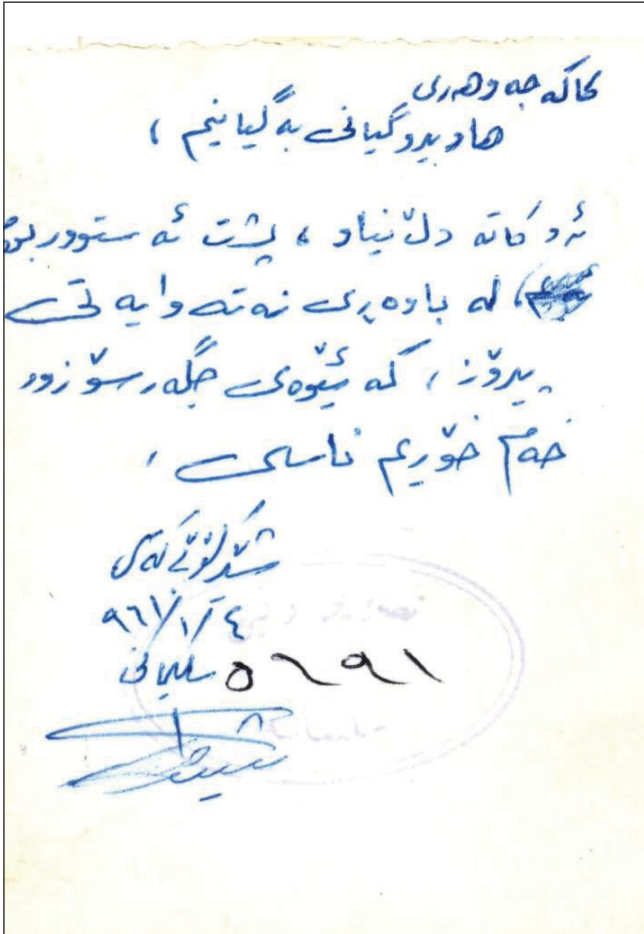 کاکە جەوهەری
هاوبیروگیانی بەگیانیم ،
ئەوکاتە دڵنیاو ، پشت ئەستووربوم
لە باوەڕی نەتەوایەتی
پیرۆز ، کە ئێوەی جگەرسۆزو
خەم خۆریم ناسی ،
٩٦١/١/٤
سلێمانی
٥٦٩١
تصویر